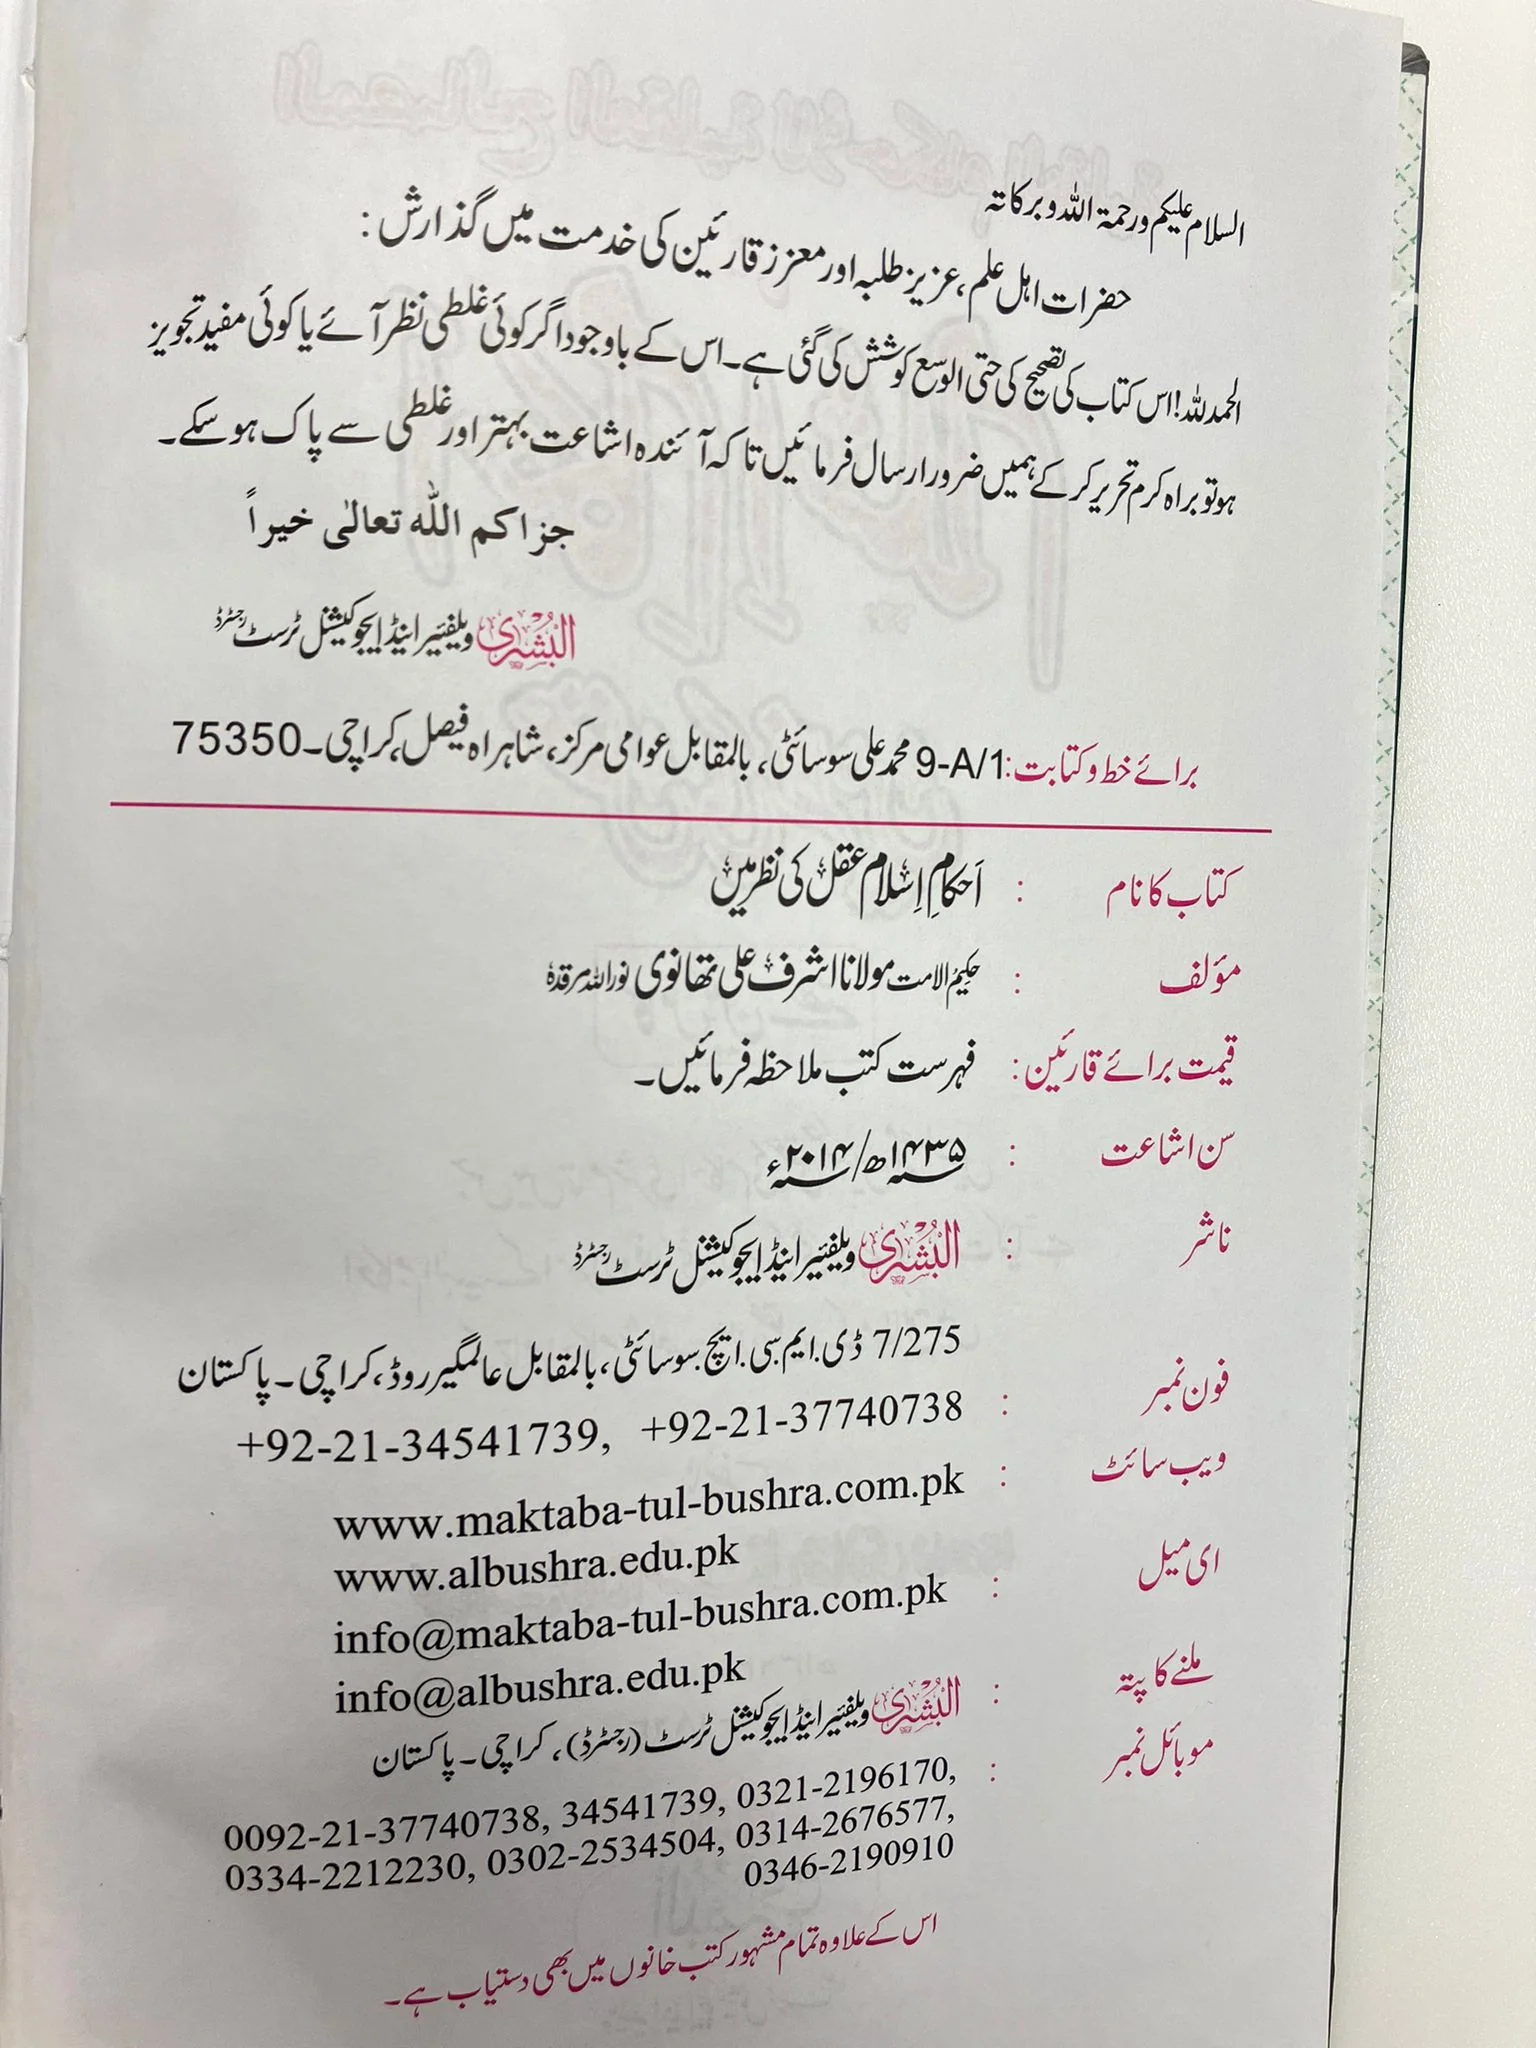 السلام علیکم ورحمۃ اللہ وبرکاتہ
حضرات اہل علم، عزیز طلبہ اور معزز قارئین کی خدمت میں گذارش:
الحمد للہ! اس کتاب کی تصحیح کی حتی الوسع کوشش کی گئی ہے۔ اس کے باوجود اگر کوئی غلطی نظر آئے یا کوئی مفید تجویز
ہو تو براہ کرم تحریر کر کے ہمیں ضرور ارسال فرمائیں تاکہ آئندہ اشاعت بہتر اور غلطی سے پاک ہو سکے۔
جزاکم اللہ تعالیٰ خیراً
البُشریٰ ویلفئیر اینڈ ایجوکیشنل ٹرسٹ رجسٹرڈ
برائے خط و کتابت: 9-A/1 محمد علی سوسائٹی، بالمقابل عوامی مرکز، شاہراہ فیصل، کراچی۔ 75350
کتاب کا نام : اَحکامِ اِسلام عقل کی نظر میں
مؤلف : حکیم الامت مولانا اشرف علی تھانوی نور اللہ مرقدہٗ
قیمت برائے قارئین : فہرست کتب ملاحظہ فرمائیں۔
سن اشاعت : ۱۴۳۵ھ/ ۲۰۱۴ء
ناشر : البُشریٰ ویلفئیر اینڈ ایجوکیشنل ٹرسٹ رجسٹرڈ
7/275 ڈی.ایم.سی.ایچ.سوسائٹی، بالمقابل عالمگیر روڈ، کراچی۔ پاکستان
فون نمبر : +92-21-34541739, +92-21-37740738
ویب سائٹ : www.maktaba-tul-bushra.com.pk
www.albushra.edu.pk
ای میل : info@maktaba-tul-bushra.com.pk
info@albushra.edu.pk
ملنے کا پتہ : البُشریٰ ویلفئیر اینڈ ایجوکیشنل ٹرسٹ (رجسٹرڈ)، کراچی۔ پاکستان
موبائل نمبر : 0092-21-37740738, 34541739, 0321-2196170,
0334-2212230, 0302-2534504, 0314-2676577,
0346-2190910
اس کے علاوہ تمام مشہور کتب خانوں میں بھی دستیاب ہے۔